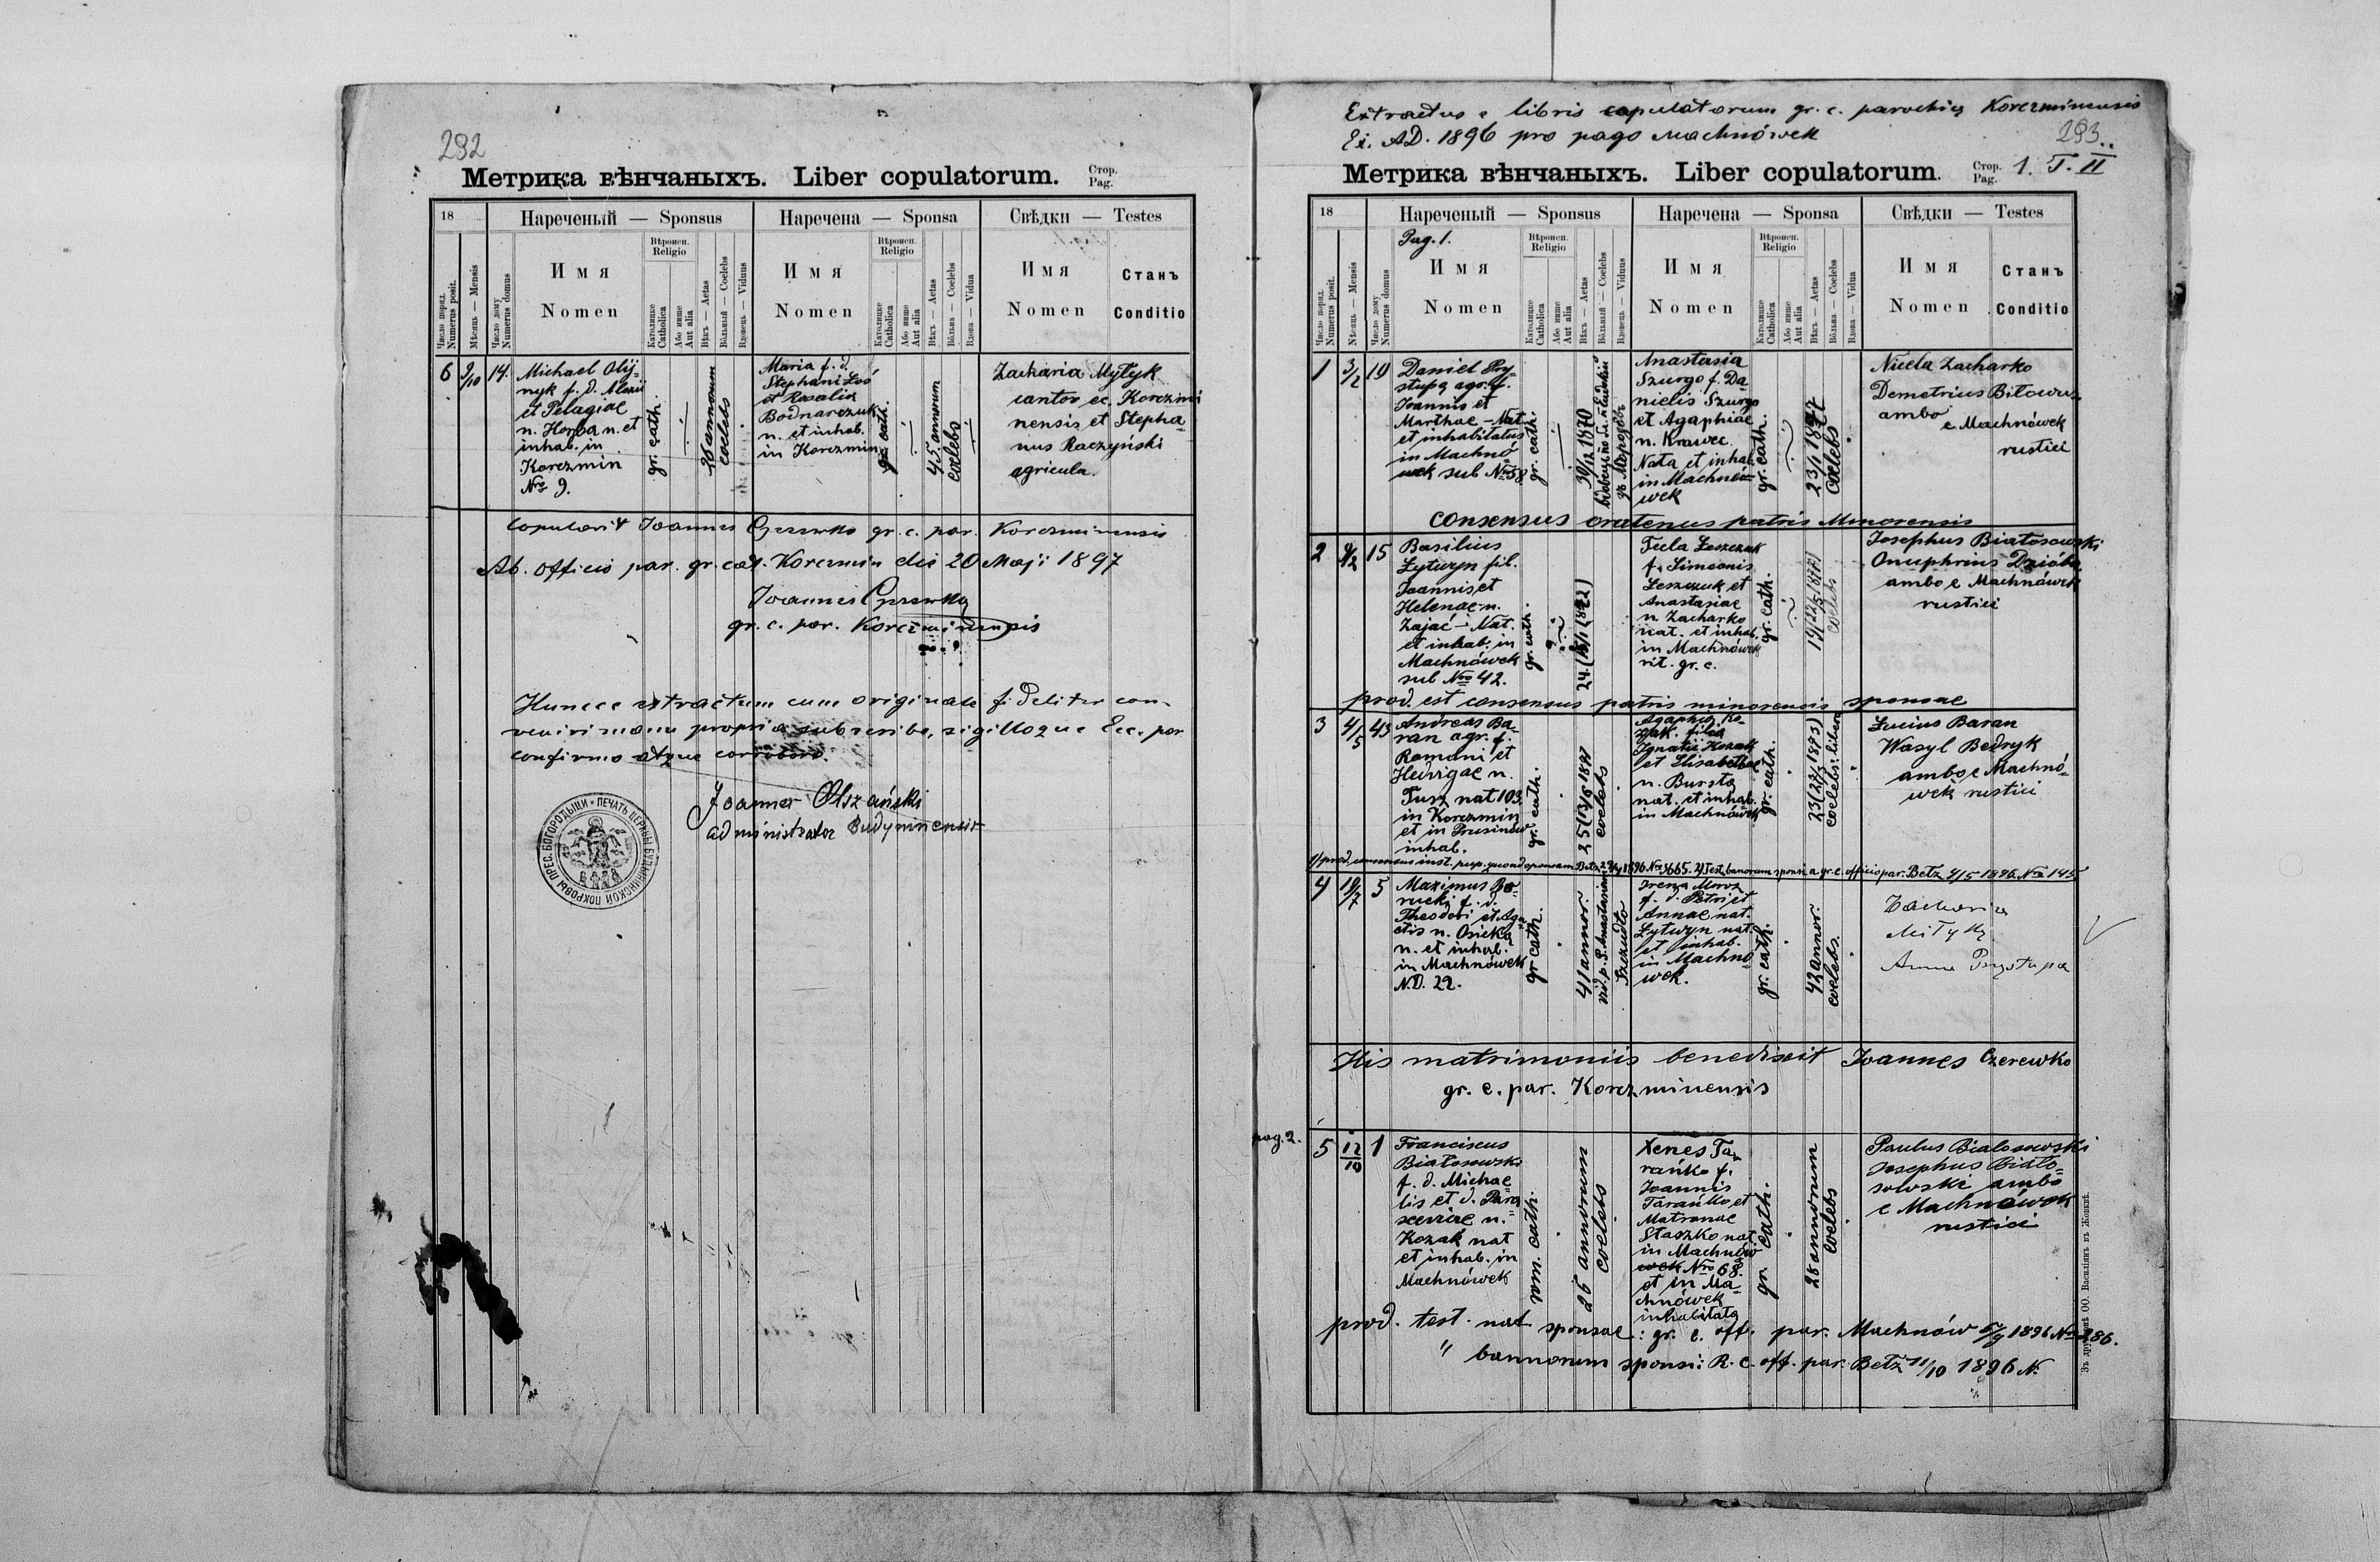 292
Метрика вѣнчаныхъ. Liber copulatorum.
Стор.
Pag.
18
Нареченый — Sponsus
Наречена — Sponsa
Свѣдки — Testes
Число поряд.
Numerus posit.
Мѣсяць — Mensis
Число дому
Numerus domus
Имя
Nomen
Вѣроисп.
Religio
Католицке
Catholica
Або инше
Aut alia
Вѣкъ — Aetas
Вôльный — Coelebs
Вдовець — Viduus
Имя
Nomen
Вѣроисп.
Religio
Католицке
Catholica
Або инше
Aut alia
Вѣкъ — Aetas
Вôльна — Coelebs
Вдова — Vidua
Имя
Nomen
Станъ
Conditio
6
9/10
14.
Michael Olij-
nyk f. d. Alexii
et Pelagiae
n. Horba n. et
inhab. in
Korczmin
Nro 9.
gr. cath.
26 annorum
coelebs
Maria f. d.
Stephani Łoś
et Rosalia
Bodnarczuk
n. et inhab.
in Korczmin
gr. cath.
45 annorum
coelebs
Zacharia Mytyk
cantor ec. Korczmi
nensis et Stepha-
nus Raczyński
agricula.
Copulavit Joannes Czerewko gr. c. par. Korczminensis
Ab. officio par. gr. cat. Korczmin die 20 Maji 1897
Joannes Czerewko
gr. c. par. Korczminensis
Hunce extractum cum originale fideliter con-
veniri manu propria subscribo, sigilloque Ecc. par
confirmo atque corroboro.
Joannes Olszański
administrator Budyninensis
ПЕЧАТЬ ЦЕРКВЫ БУДЫНИНСКОЙ ПОКРОВЫ ПРЕС. БОГОРОДЫЦИ
Extractus e libris copulatorum gr. c. parochiis Korczminensis
Ex. AD. 1896 pro pago Machnówek
293
Метрика вѣнчаныхъ. Liber copulatorum.
Стор.
Pag.
1. T. II
18
Нареченый — Sponsus
Наречена — Sponsa
Свѣдки — Testes
Число поряд.
Numerus posit.
Мѣсяць — Mensis
Число дому
Numerus domus
Pag. 1.
Имя
Nomen
Вѣроисп.
Religio
Католицке
Catholica
Або инше
Aut alia
Вѣкъ — Aetas
Вôльный — Coelebs
Вдовець — Viduus
Имя
Nomen
Вѣроисп.
Religio
Католицке
Catholica
Або инше
Aut alia
Вѣкъ — Aetas
Вôльна — Coelebs
Вдова — Vidua
Имя
Nomen
Станъ
Conditio
1
3/2
19
Daniel Pry-
stupa agr. f.
Joannis et
Marthae - Nat
et inhabitatus
in Machnó
wek sub No 58
gr. cath.
30/12 1870
Anastasia
Szurgo f. Da-
nielis Szurgo
et Agaphiae
n. Krawec
Nata et inhab.
in Machnó-
wek
gr. cath.
23/1 1877
coelebs
Nicela Zacharko
Demetrius Biłowus
ambo
e Machnówek
rustici
consensus oratenus patris Minorensis
2
9/2
15
Basilius
Łytwyn fil.
Joannis et
Helenae n.
Zajać - Nat.
et inhab. in
Machnówek
sub Nro 42.
gr. cath.
Tecla Leszczuk
f. Simeonis
Leszczuk et
Anastasiae
n Zacharko
nat. et inhab.
in Machnówek
rit. gr. c.
gr. cath.
coelebs
Josephus Białosowski
Onuphrius Dzióba
ambo e Machnówek
rustici
prod. est consensus patris minorensis sponsae
3
4/5
43
Andreas Ba-
ran agr. f.
Romani et
Hedvigae n.
Tusz nat 103
in Korczmin
et in Prusinów
inhab.
gr. cath.
coelebs
Agaphia Ko-
zak. filia
Ignatii Kozak
et Elisabethae
n. Bursta
nat. et inhab.
in Machnówek
gr. cath.
coelebs: libera
Lucius Baran
Wasyl Bedryk
ambo e Machnó-
wek rustici
4
19/7
5
Maximus Bo-
rucki f. d.
Theodori et Aga-
etis n. Osieka
n. et inhab.
in Machnówek
N.D. 22.
gr cath.
41 annor.
vid. p. S. Anastasiam
Szczudło
Irena Moroz
f. d. Petri et
Annae nat.
Łytwyn nat.
et inhab.
in Machnó
wek.
gr. cath.
42 annor.
coelebs.
Zacharia
Mityk
Anna Prystupa
His matrimoniis benedixit Joannes Czerewko
gr. c. par. Korczminensis
pag. 2.
5
12/10
1
Franciscus
Białosowski
f. d. Michae-
lis et d. Para-
sceviae n.
Kozak nat
et inhab. in
Machnówek
rom. cath.
26 annorum
coelebs
Xenes Ta-
rańko f.
Joannis
Tarańko et
Matronae
Staszko nat.
in Machnów
wek Nro 68.
et in Ma-
chnówek
inhabitata
gr. cath.
28 annorum
coelebs
Paulus Białosowski
Josephus Biało-
sowski ambo
e Machnówek
rustici
prod. test. nat sponsae: gr. c. off. par. Machnów 1896 No 286.
" bannorum sponsi: R. c. off. par. Bełz 11/10 1896 N.
Зъ друкарнѣ ОО. Василіянъ въ Жовквѣ.